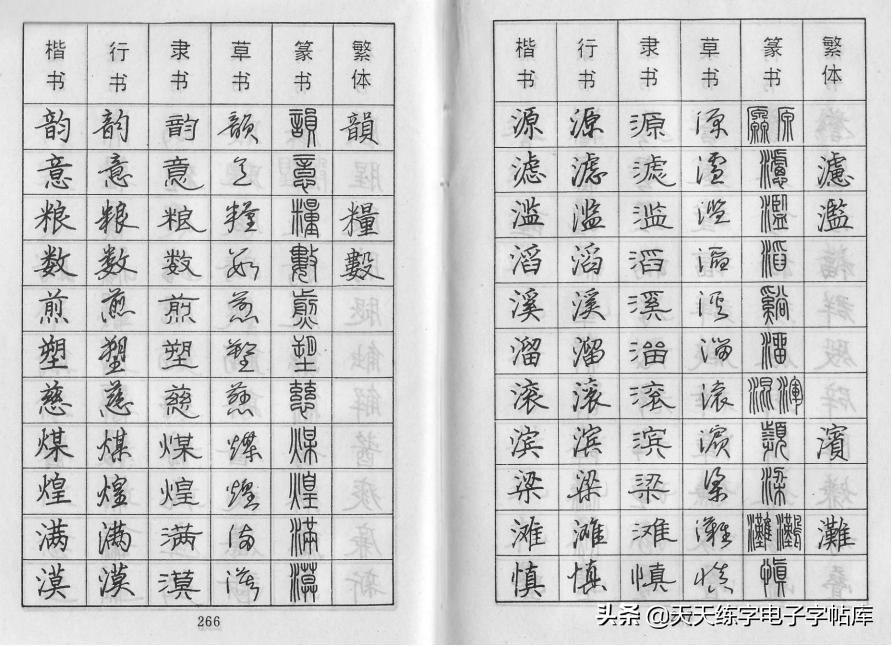 楷书 行书 隶书 草书 篆书 繁体
韵 韵 韵 韵 韻 韻
意 意 意 意 意
粮 粮 粮 糧 糧 糧
数 数 数 数 數 數
煎 煎 煎 煎 煎
塑 塑 塑 塑 塑
慈 慈 慈 慈 慈
煤 煤 煤 煤 煤
煌 煌 煌 煌 煌
满 满 满 满 滿
漠 漠 漠 漠 漠
266
楷书 行书 隶书 草书 篆书 繁体
源 源 源 源 原
滤 滤 滤 滤 濾 濾
滥 滥 滥 滥 濫 濫
滔 滔 滔 滔 滔
溪 溪 溪 溪 谿
溜 溜 溜 溜 溜
滚 滚 滚 滚 混 渾
滨 滨 滨 滨 濱
梁 梁 梁 梁 梁
滩 滩 滩 灘 灘 灘
慎 慎 慎 慎 慎
头条 @天天练字电子字帖库